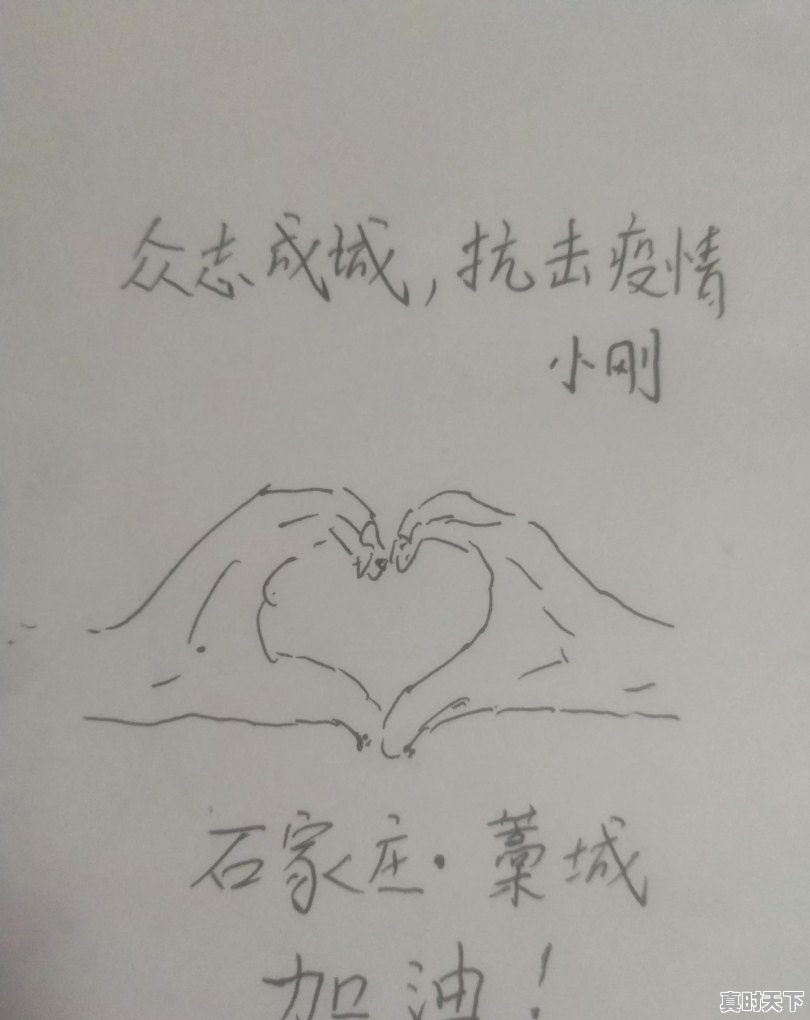 众志成城，抗击疫情
小刚
石家庄·藁城
加油！
真时天下